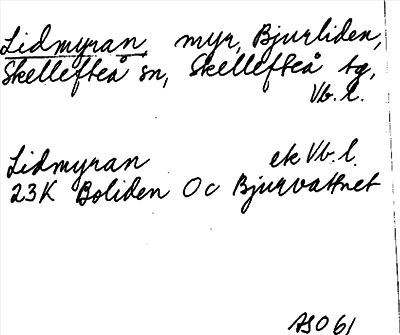 Lidmyran, myr, Bjurliden,
Skellefteå sn, Skellefteå tg,
Vb. l.
Lidmyran ek Vb. l.
23K Boliden 0c Bjurvattnet
ASO 61